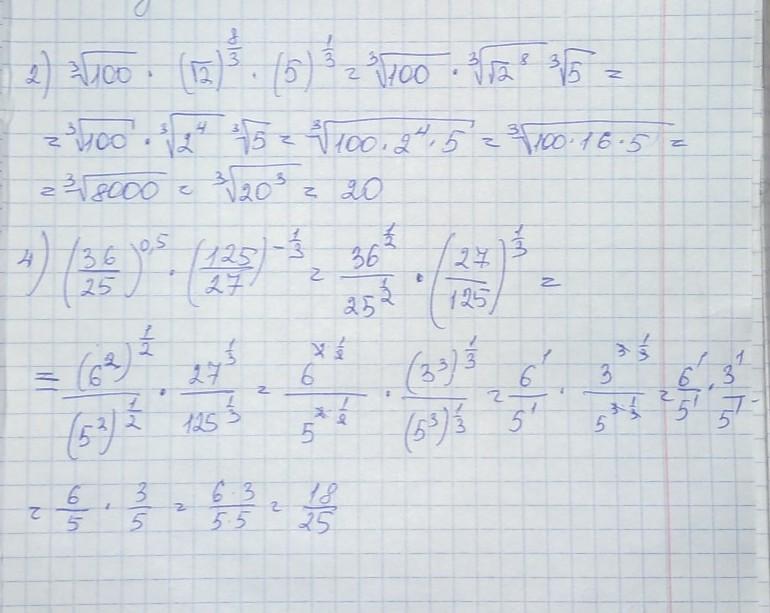 2) ∛100 · (√2)^(8/3) · (5)^(1/3) = ∛100 · ∛(√2^8) ∛5 =
= ∛100 · ∛(2^4) ∛5 = ∛(100·2^4·5) = ∛(100·16·5) =
= ∛8000 = ∛(20^3) = 20
4) (36/25)^(0,5) · (125/27)^(-1/3) = 36^(1/2)/25^(1/2) · (27/125)^(1/3) =
= (6^2)^(1/2)/(5^2)^(1/2) · 27^(1/3)/125^(1/3) = 6^(2·1/2)/5^(2·1/2) · (3^3)^(1/3)/(5^3)^(1/3) = 6^1/5^1 · 3^(3·1/3)/5^(3·1/3) = 6^1/5^1 · 3^1/5^1 =
= 6/5 · 3/5 = 6·3/5·5 = 18/25